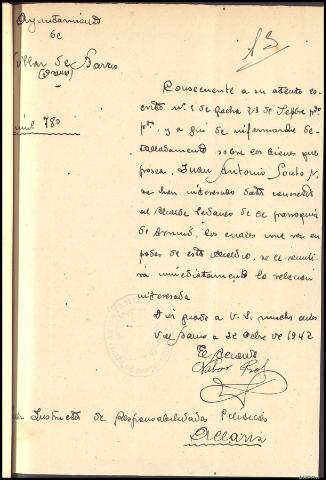 Ayuntamiento
de
Villar de Barrio
(Orense)
13
Núm 780
Consecuente a su atento es-
crito nº 5 de fecha 28 de Septre pdo
y a fin de informarle de-
talladamente sobre los bienes que
posea, Juan Antonio Souto
se han interesado datos concretos
al Alcalde Pedaneo de la parroquia
de, los cuales una vez en
poder de esta Alcaldia, se le remiti-
ra inmediatamente la relacion
interesada
Dios guarde a V.S. muchos años
V. del Barrio a 22 Octre de 1942
El Alcalde
Instructor de Responsabilidades Politicas
Allariz